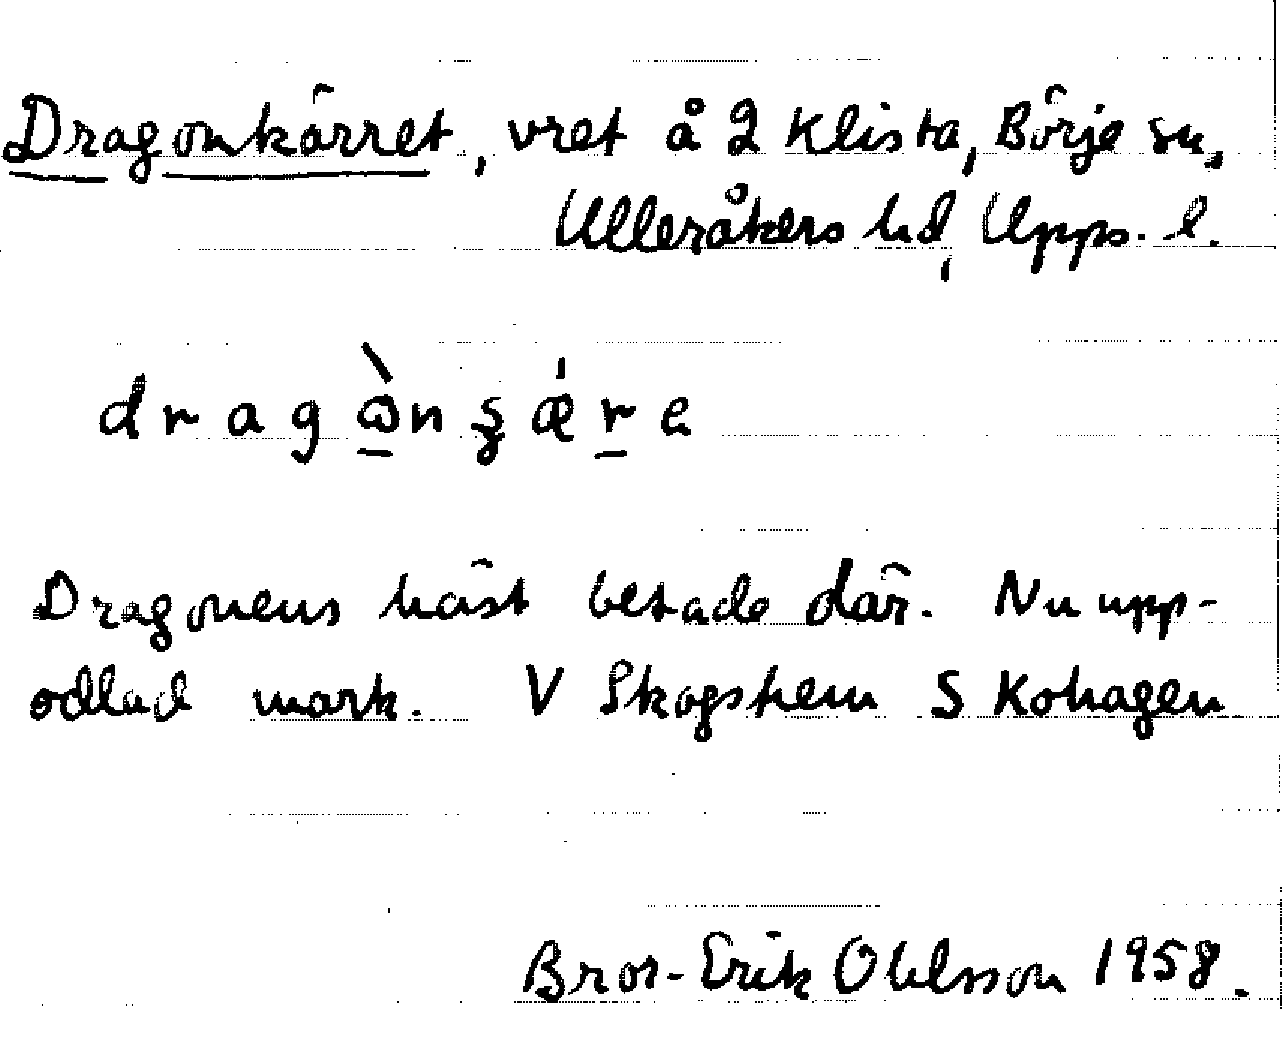 Dragonkärret, vret å 2 Klista, Börje sn,
Ulleråkers hd, Upps. l.
dragɷ̀nʂǽre
Dragonens häst betade där. Nu upp-
odlad mark. V Skogshem S Kohagen
Bror-Erik Ohlsson 1958.